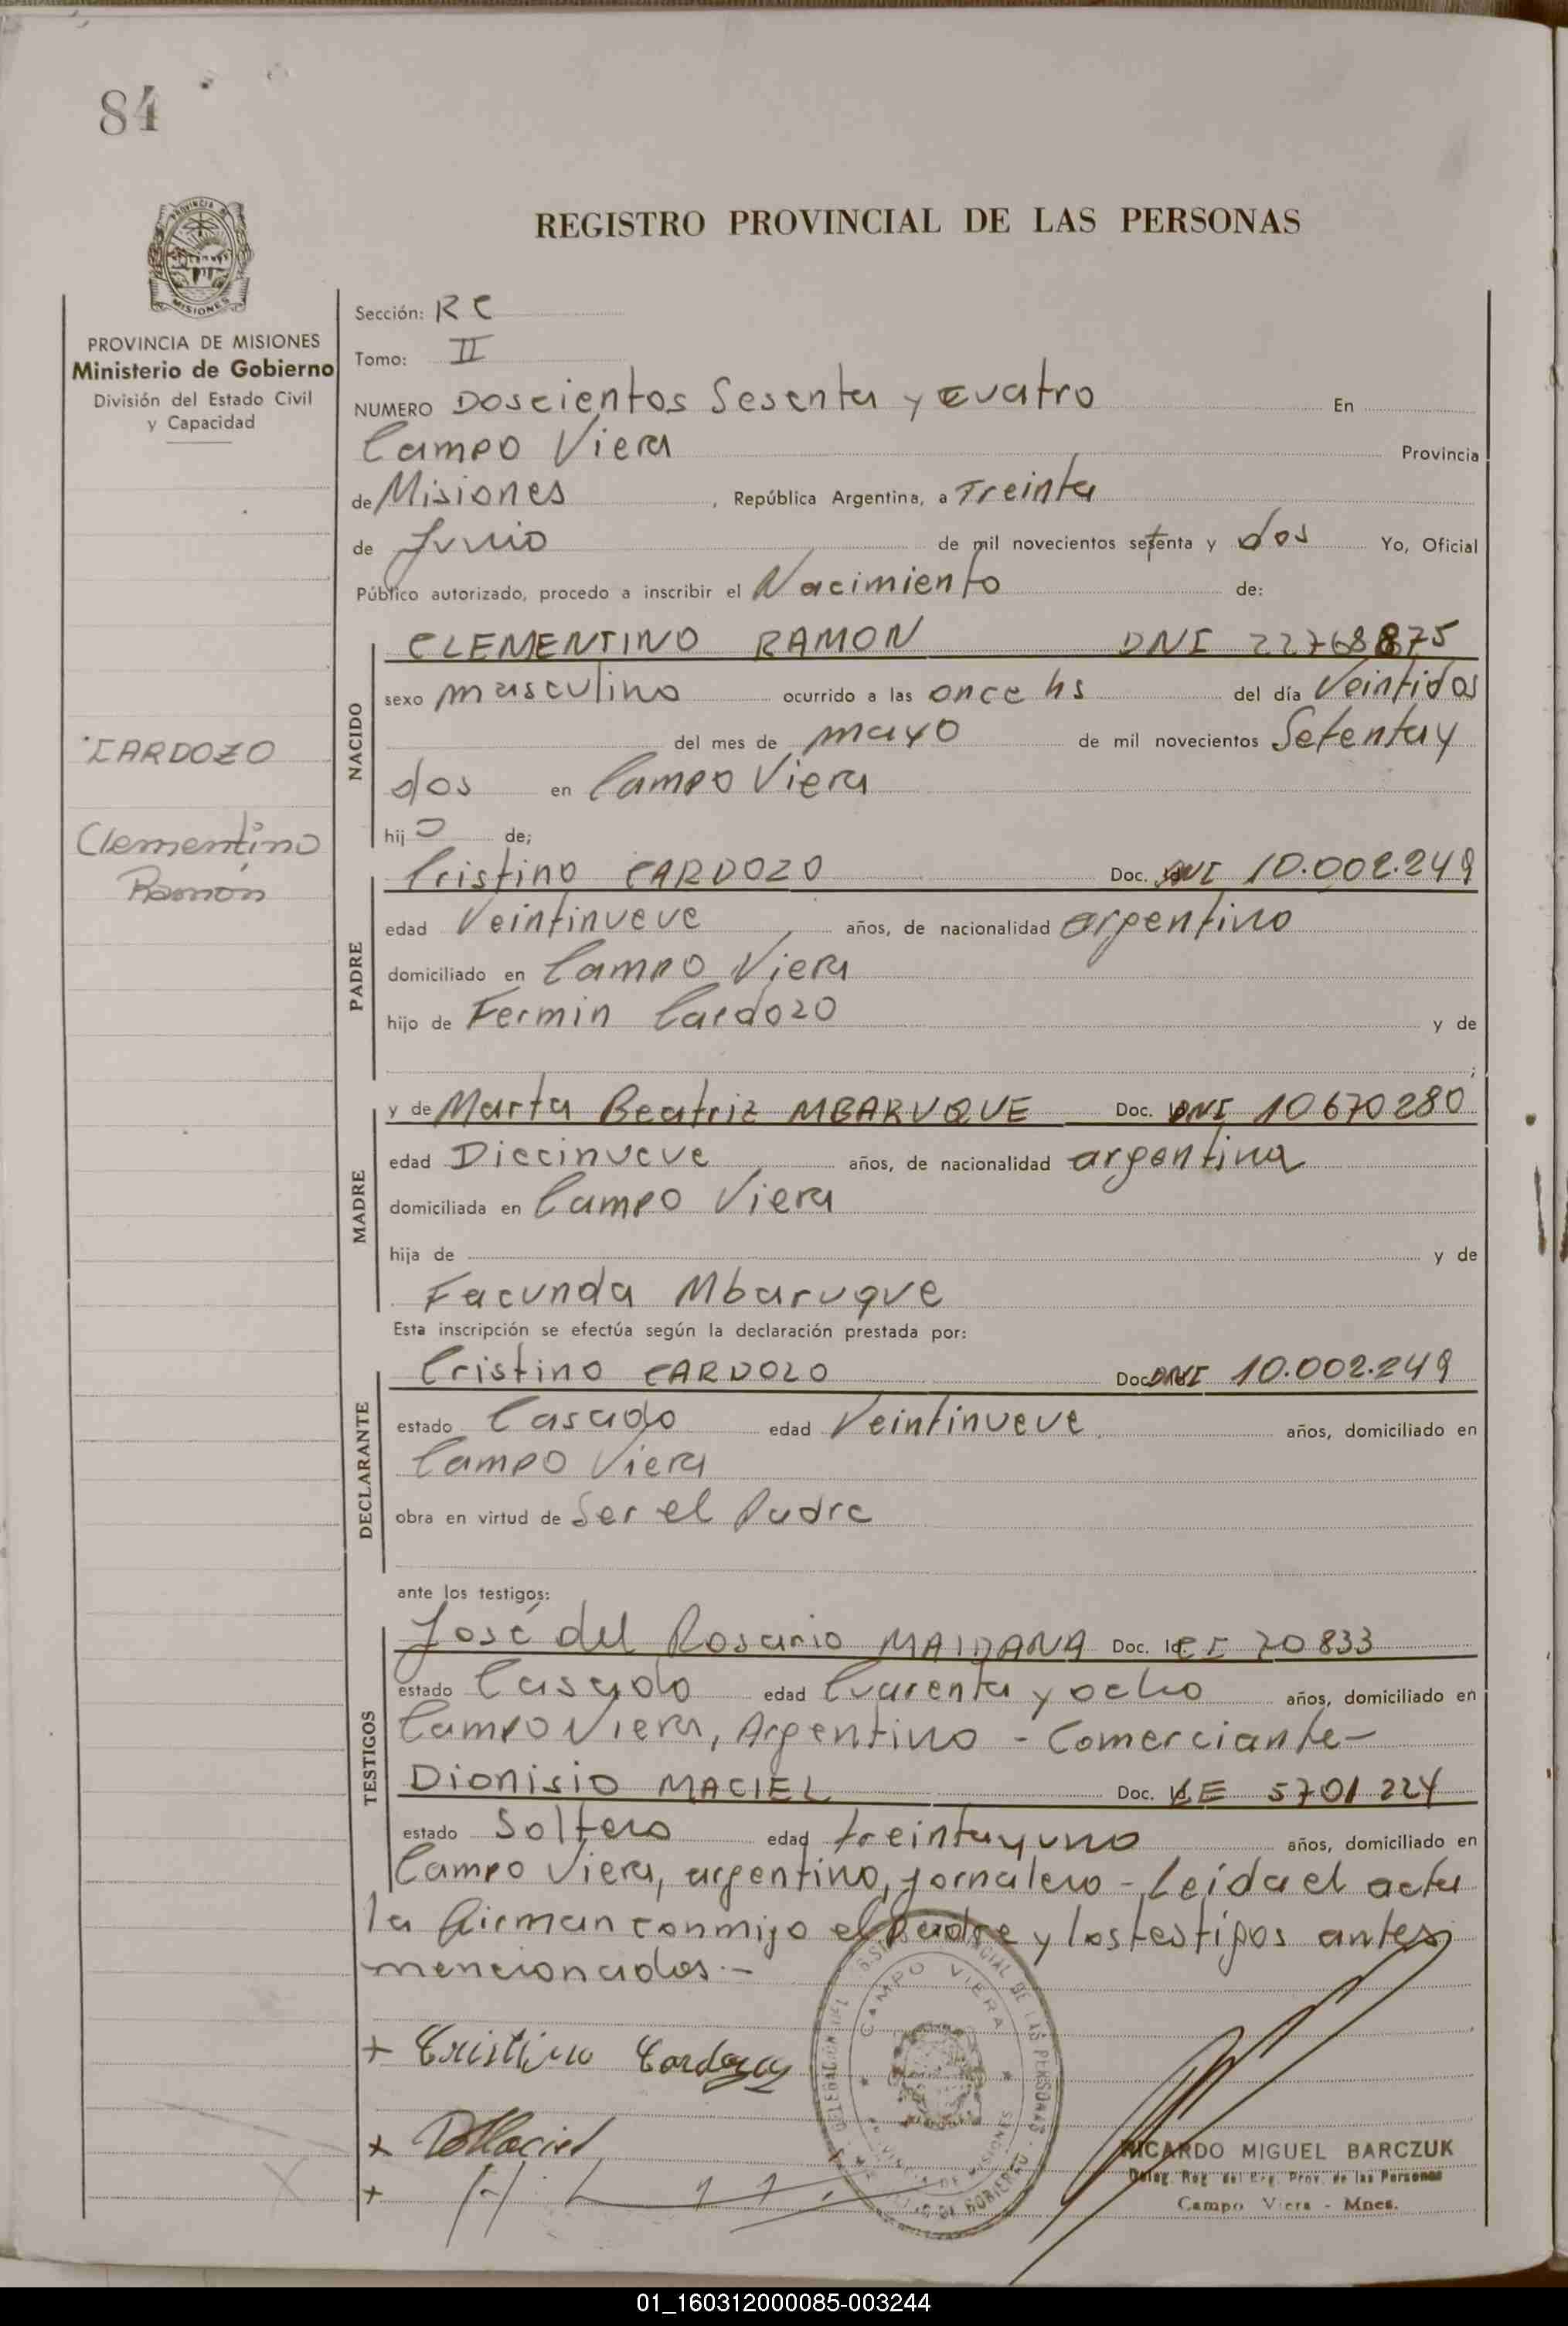 84
REGISTRO PROVINCIAL DE LAS PERSONAS
PROVINCIA DE MISIONES
Ministerio de Gobierno
División del Estado Civil
y Capacidad
CARDOZO
Clementino
Ramón
Sección: RC
Tomo: II
NUMERO Doscientos Sesenta y cuatro En
Campo Viera Provincia
de Misiones, República Argentina, a Treinta
de Junio de mil novecientos setenta y dos Yo, Oficial
Público autorizado, procedo a inscribir el Nacimiento de:
NACIDO
CLEMENTINO RAMON DNI 22768875
sexo masculino ocurrido a las once hs del día Veintidos
del mes de mayo de mil novecientos Setenta y
dos en Campo Viera
hijo de;
PADRE
Cristino CARDOZO Doc. DNI 10.002.249
edad Veintinueve años, de nacionalidad argentino
domiciliado en Campo Viera
hijo de Fermin Cardozo y de
;
MADRE
y de Marta Beatriz MBARUQUE Doc. DNI 10670280
edad Diecinueve años, de nacionalidad argentina
domiciliada en Campo Viera
hija de y de
Facunda Mbaruque
Esta inscripción se efectúa según la declaración prestada por:
DECLARANTE
Cristino CARDOZO Doc DNI 10.002.249
estado Casado edad Veintinueve años, domiciliado en
Campo Viera
obra en virtud de Ser el Padre
ante los testigos:
TESTIGOS
José del Rosario MAIDANA Doc. Id. CI 70833
estado Casado edad Cuarenta y ocho años, domiciliado en
Campo Viera, Argentino - Comerciante-
Dionisio MACIEL Doc. LE 5701224
estado Soltero edad treinta y uno años, domiciliado en
Campo Viera, argentino, jornalero - Leida el acta
la firman conmigo el Padre y los testigos antes
mencionados.-
+ Cristino Cardozo
+ DMaciel
+
CAMPO VIERA
RICARDO MIGUEL BARCZUK
Deleg. Reg. del Reg. Prov. de las Personas
Campo Viera - Mnes.
01_160312000085-003244